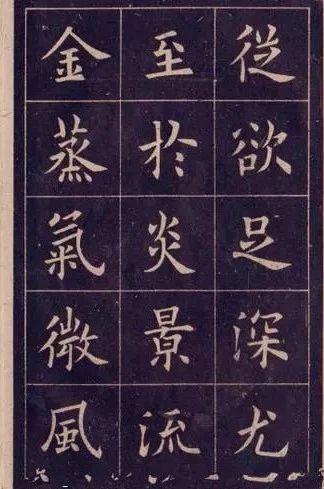 從欲足深尤
至於炎景流
金蒸氣微風